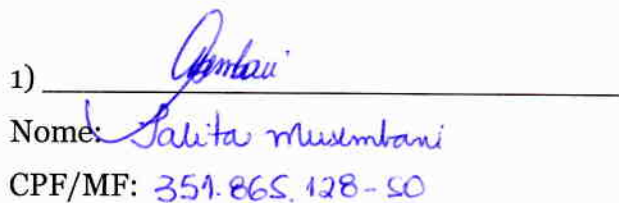 1)
Nome: Talita Musembani
CPF/MF: 351.865.128-50